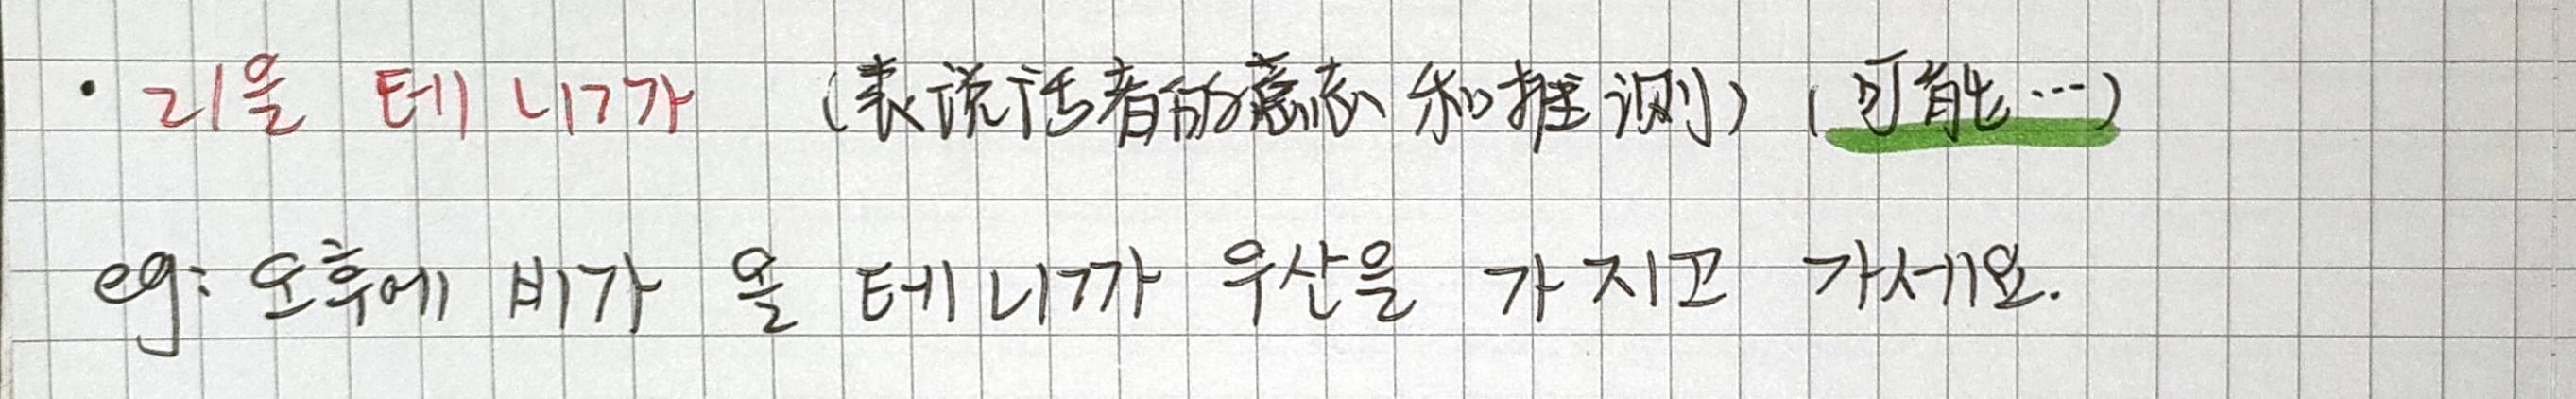 · ㄹ/을 테니까 (表说话者的意志和推测) (可能…)
eg: 오후에 비가 올 테니까 우산을 가지고 가세요.